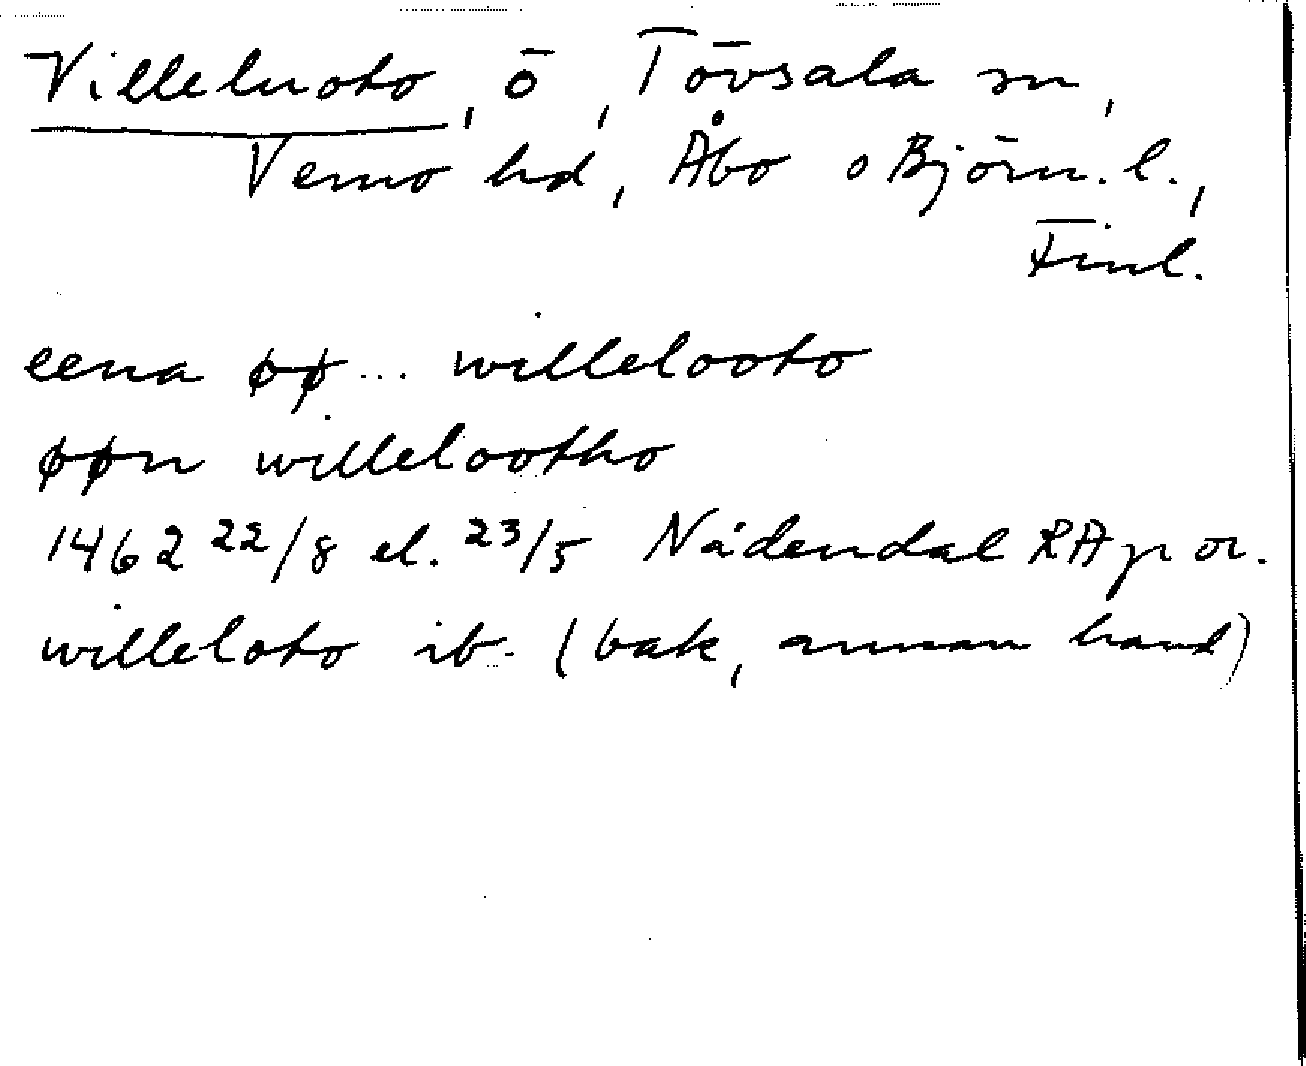 Villeluoto, ö, Tövsala sn,
Vemo hd, Åbo o Björn. l.,
Finl.
eena øø ... willelooto
øøn willelootho
1462 22/8 el. 23/5 Nådendal RAp or.
willeloto ib. (bak, annan hand)